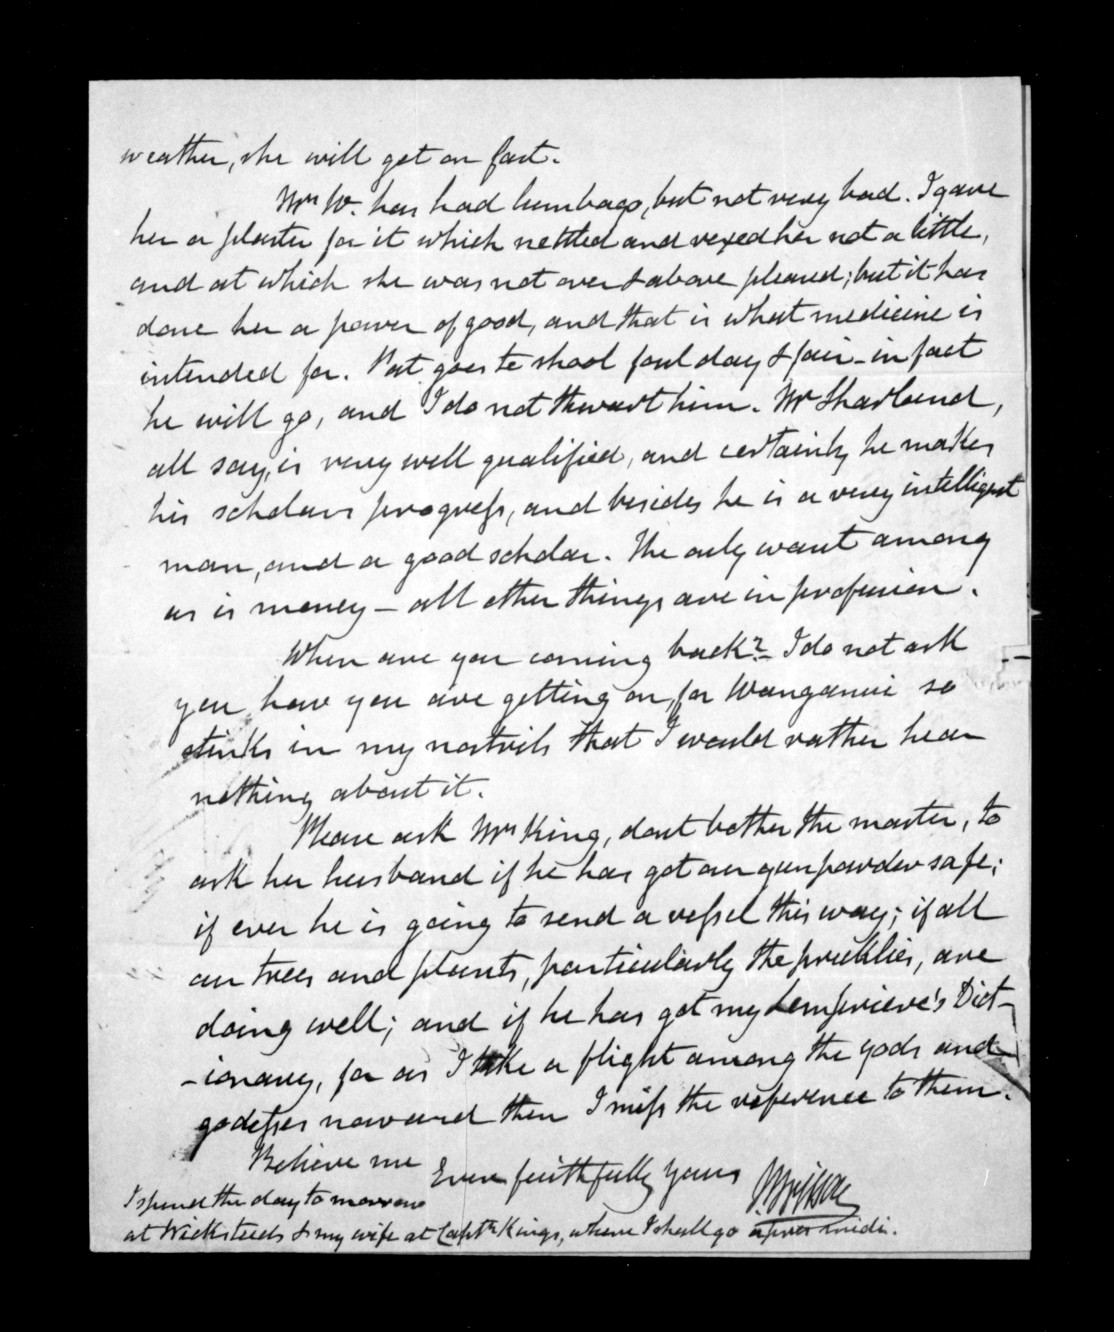 weather, she will get on fast.
Mrs W. has had lumbago, but not very bad. I gave
her a plaster for it which nettled and vexed her not a little,
and at which she was not over & above pleased; but it has
done her a power of good, and that is what medicine is
intended for. Pat goes to shool foul day & fair - in fact
he will go, and I do not thwart him. Mr Sharland,
all say, is very well qualified, and certainly he makes
his scholars progress, and besides he is a very intelligent
man, and a good scholar. The only want among
us is money - all other things are in profusion.
When are you coming back? I do not ask
you how you are getting on, for Wanganui so
stinks in my nostrils that I would rather hear
nothing about it.
Please ask Mrs King, dont bother the master, to
ask her husband if he has got our gunpowder safe;
if ever he is going to send a vessel this way; if all
our trees and plants, particularly the pricklies, are
doing well; and if he has got my Lempriere's Dict-
-ionary, for as I take a flight among the gods and
godesses now and then I miss the reference to them.
Believe me
Ever faithfully yours
I spend the day to morrow
at Wicksteeds & my wife at Captn Kings, where I shall go apres midi.